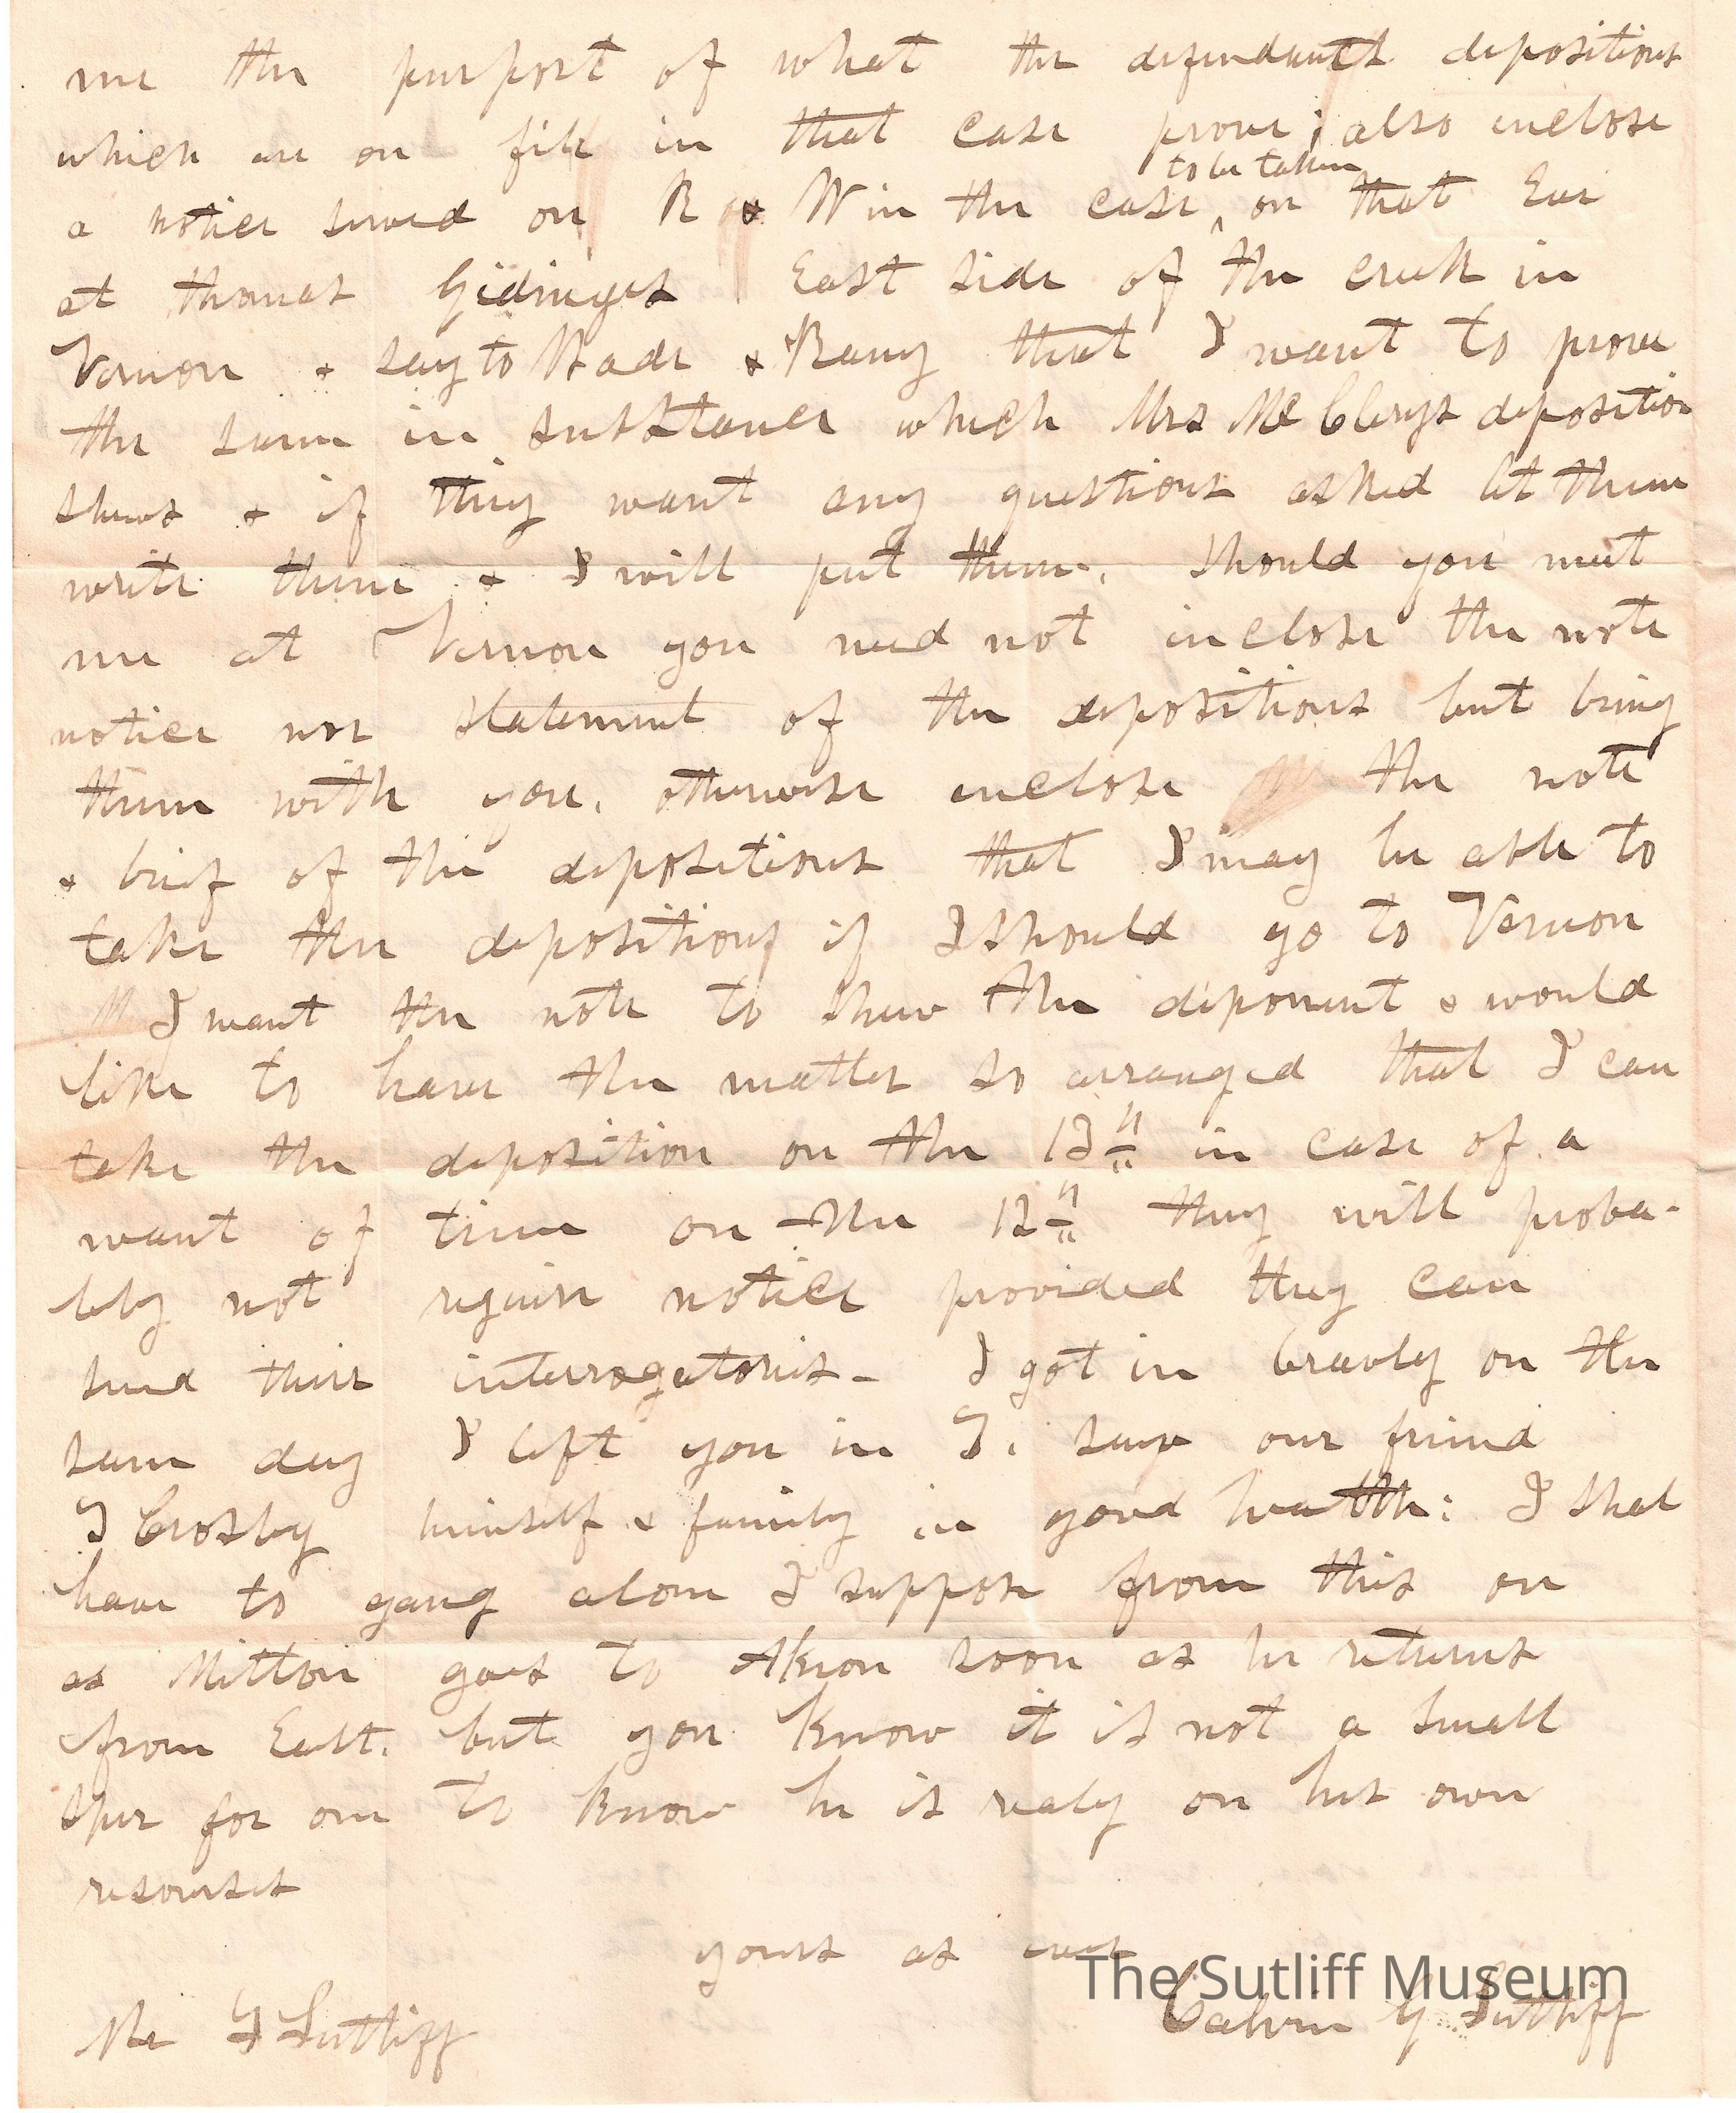 me the purport of what the defendants depositions
which are on file in that case prove; also inclose
to be taken
a notice served on R & W in the case, on that Eve
at thomas Gidinges East side of the creek in
Vernon & say to Wade & Raney that I want to prove
the same in substance which Mrs McClerys deposition
shews & if they want any questions asked let them
write them & I will put them. Should you meet
me at Vernon you need not inclose the note
notice nor statement of the depositions but bring
them with you. otherwise enclose the note
& brief of the depositions that I may be able to
take the depositions if I should go to Vernon
I want the note to shew the deponent & would
like to have the matter so arranged that I can
take the deposition on the 13th in case of a
want of time on the 12th they will proba-
bly not require notice provided they can
send their interrogatories - I got in bravely on the
same day I left you in G. saw our friend
J Crosby himself & family in good health: I shal
have to gang alone I suppose from this on
as Milton goes to Akron soon as he returns
from East. but you know it is not a small
spur for one to know he is realy on his own
resourses
yours as ever
The Sutliff Museum
Calvin G Sutliff
Mr L Sutliff